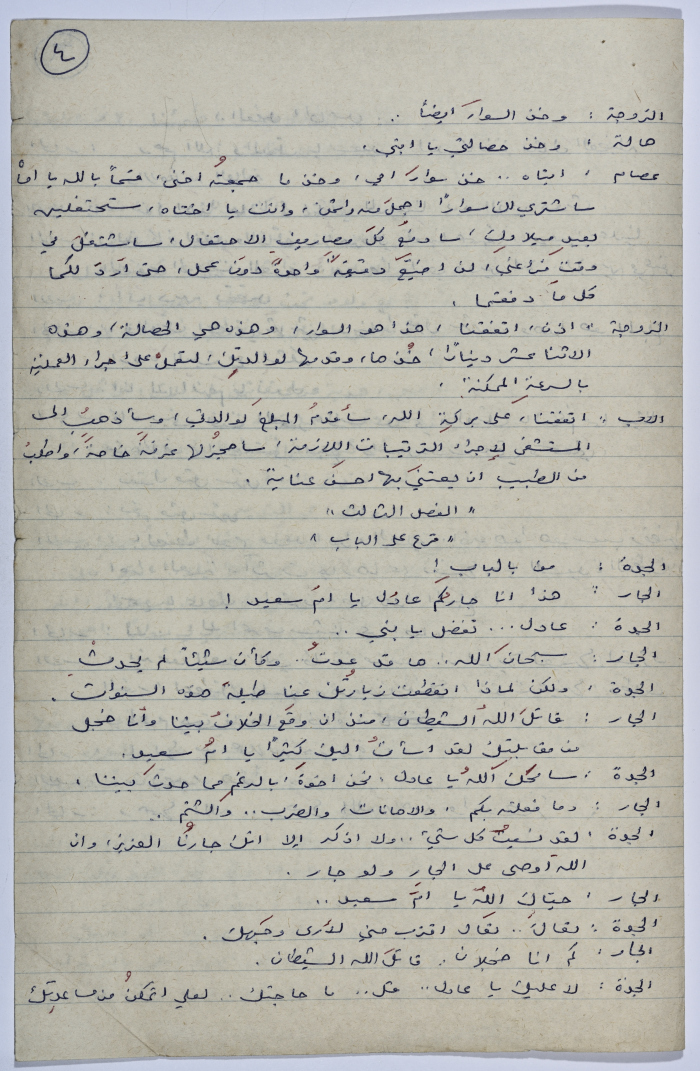 ٤
الزوجة : وخذ السوار ايضاً ..
هالة : وخذ حصالتي يا ابتي
عصام : ابتاه .. خذ سوار امي، وخذ ما جمعتْه اختي، قسماً بالله يا امّاْ
سأشتري لك سواراً اجمل منه واثمن، وانت يا اختاه، ستحتفلين
بعيد ميلادك، سأدفعُ كلَّ مصاريف الاحتفال، سأشتغل في
وقت فراغي، لن اضيّعَ دقيقةً واحدةً دونَ عمل، حتى أردّ لكما
كل ما دفعتما .
الزوجة : اذن، اتفقنا، هذا هو السوار، وهذه هي الحصالة، وهذه
الاثنا عشر ديناراً، خُذ ها، وقدمها لوالدتِك، لتعملَ على اجراء العملية
بالسرعةِ الممكنة .
الاب : اتفقنا، على بركةِ الله، سأقدمُ المبلغَ لوالدتي، وسأذهبُ الى
المستشفى لإجراء الترتيبات اللازمة، سأحجزُ لها غرفةً خاصةً، واطلبُ
من الطبيب ان يعتنيَ بها احسنَ عناية .
" الفصل الثالث "
" قرع على الباب "
الجدة : من بالباب !
الجار : هذا انا جاركم عادل يا ام سعيد !
الجدة : عادل ... تفضل يا بني ..
الجار : سبحانَ الله .. ها قد عدتُ .. وكأن شيئاً لم يحدثْ
الجدة : ولكن لماذا انقطعت زيارتُك عنا طيلةَ هذه السنوات .
الجار : قاتلَ اللهُ الشيطان، منذ ان وقعَ الخلافُ بيننا وأنا خجل
من مقابلتك لقد اسأتُ اليك كثيراً يا امَّ سعيد.
الجدة : سامحكَ اللهُ يا عادل، نحن اخوةٌ، بالرغم مما حدثَ بيننا .
الجار : وما فعلته بكم، والاهانات، والضرب .. والشتم .
الجدة : لقد نسيتُ كل شيء .. ولا اذكر الا انك جارنُا العزيز، وان
اللهَ أوصى على الجار ولو جار .
الجار : حيّاكِ اللهُ يا امَّ سعيد ..
الجدة : تعالَ .. تعالَ اقترب مني لأرى وجهك .
الجار : كم انا خجلان، قاتلَ الله الشيطان .
الجدة : لا عليك يا عادل .. قل .. ما حاجتك .. لعلي اتمكنُ من مساعدتِك